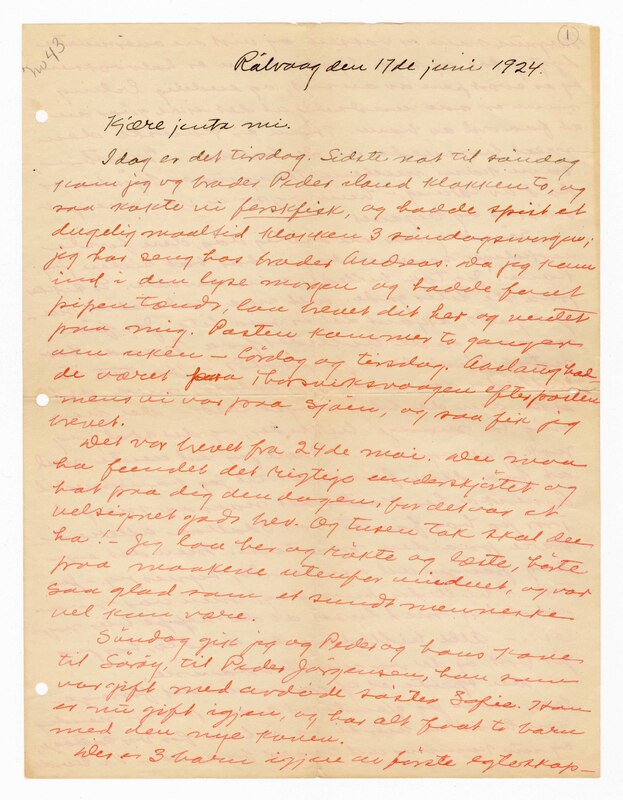 No 43
1
Rålvaag den 17de juni 1924.
Kjære jenta mi.
Idag er det tirsdag. Sidste nat til søndag
kom jeg og broder Peder iland klokken to, og
saa kokte vi ferskfisk, og hadde spist et
dugelig maaltid klokken 3 søndagsmorgen;
jeg har seng hos broder Andreas. Da jeg kom
ind i den lyse morgen og hadde faaet
pipen tændt, laa brevet dit her og ventet
paa mig. Posten kommer to ganger
om uken – lørdag og tirsdag. Aaslaug had-
de været paa i efter posten
mens vi var paa sjøen, og saa fik jeg
brevet.
Det var brevet fra 24de mai. Du maa
ha det rigtig og
hat paa dig den dagen, for det var et
velsignet godt brev. Og tusen tak skal du
ha! – Jeg laa her og røkte og læste, hørte
paa maakene utenfor vinduet, og var
saa glad som et sundt menneske
vel kan være.
Søndag gik jeg og Peder og hans kone
til Sørøy, til Peder Jørgensen, han som
var gift med avdøde søster Sofie. Han
er nu gift igjen, og har alt faat to barn
med den nye konen.
Der er 3 barn igjen av første egteskap –